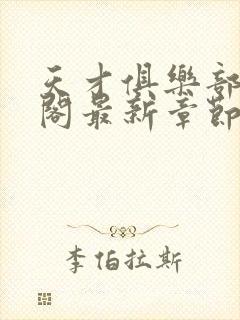 天才俱樂部
閣最新章節
李伯拉斯